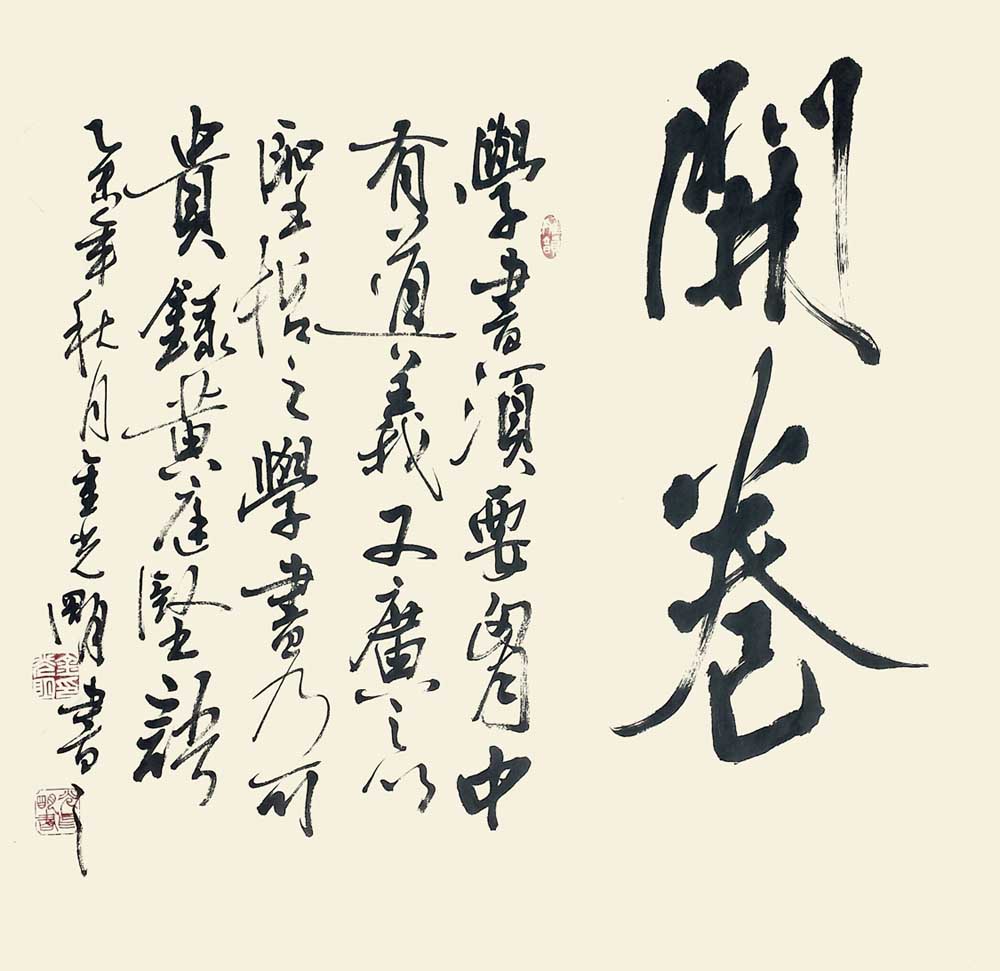 開卷
學書須要胷中
有道義又廣之以
聖哲之學書乃可
貴錄黃庭堅語
乙未年秋月金光明書